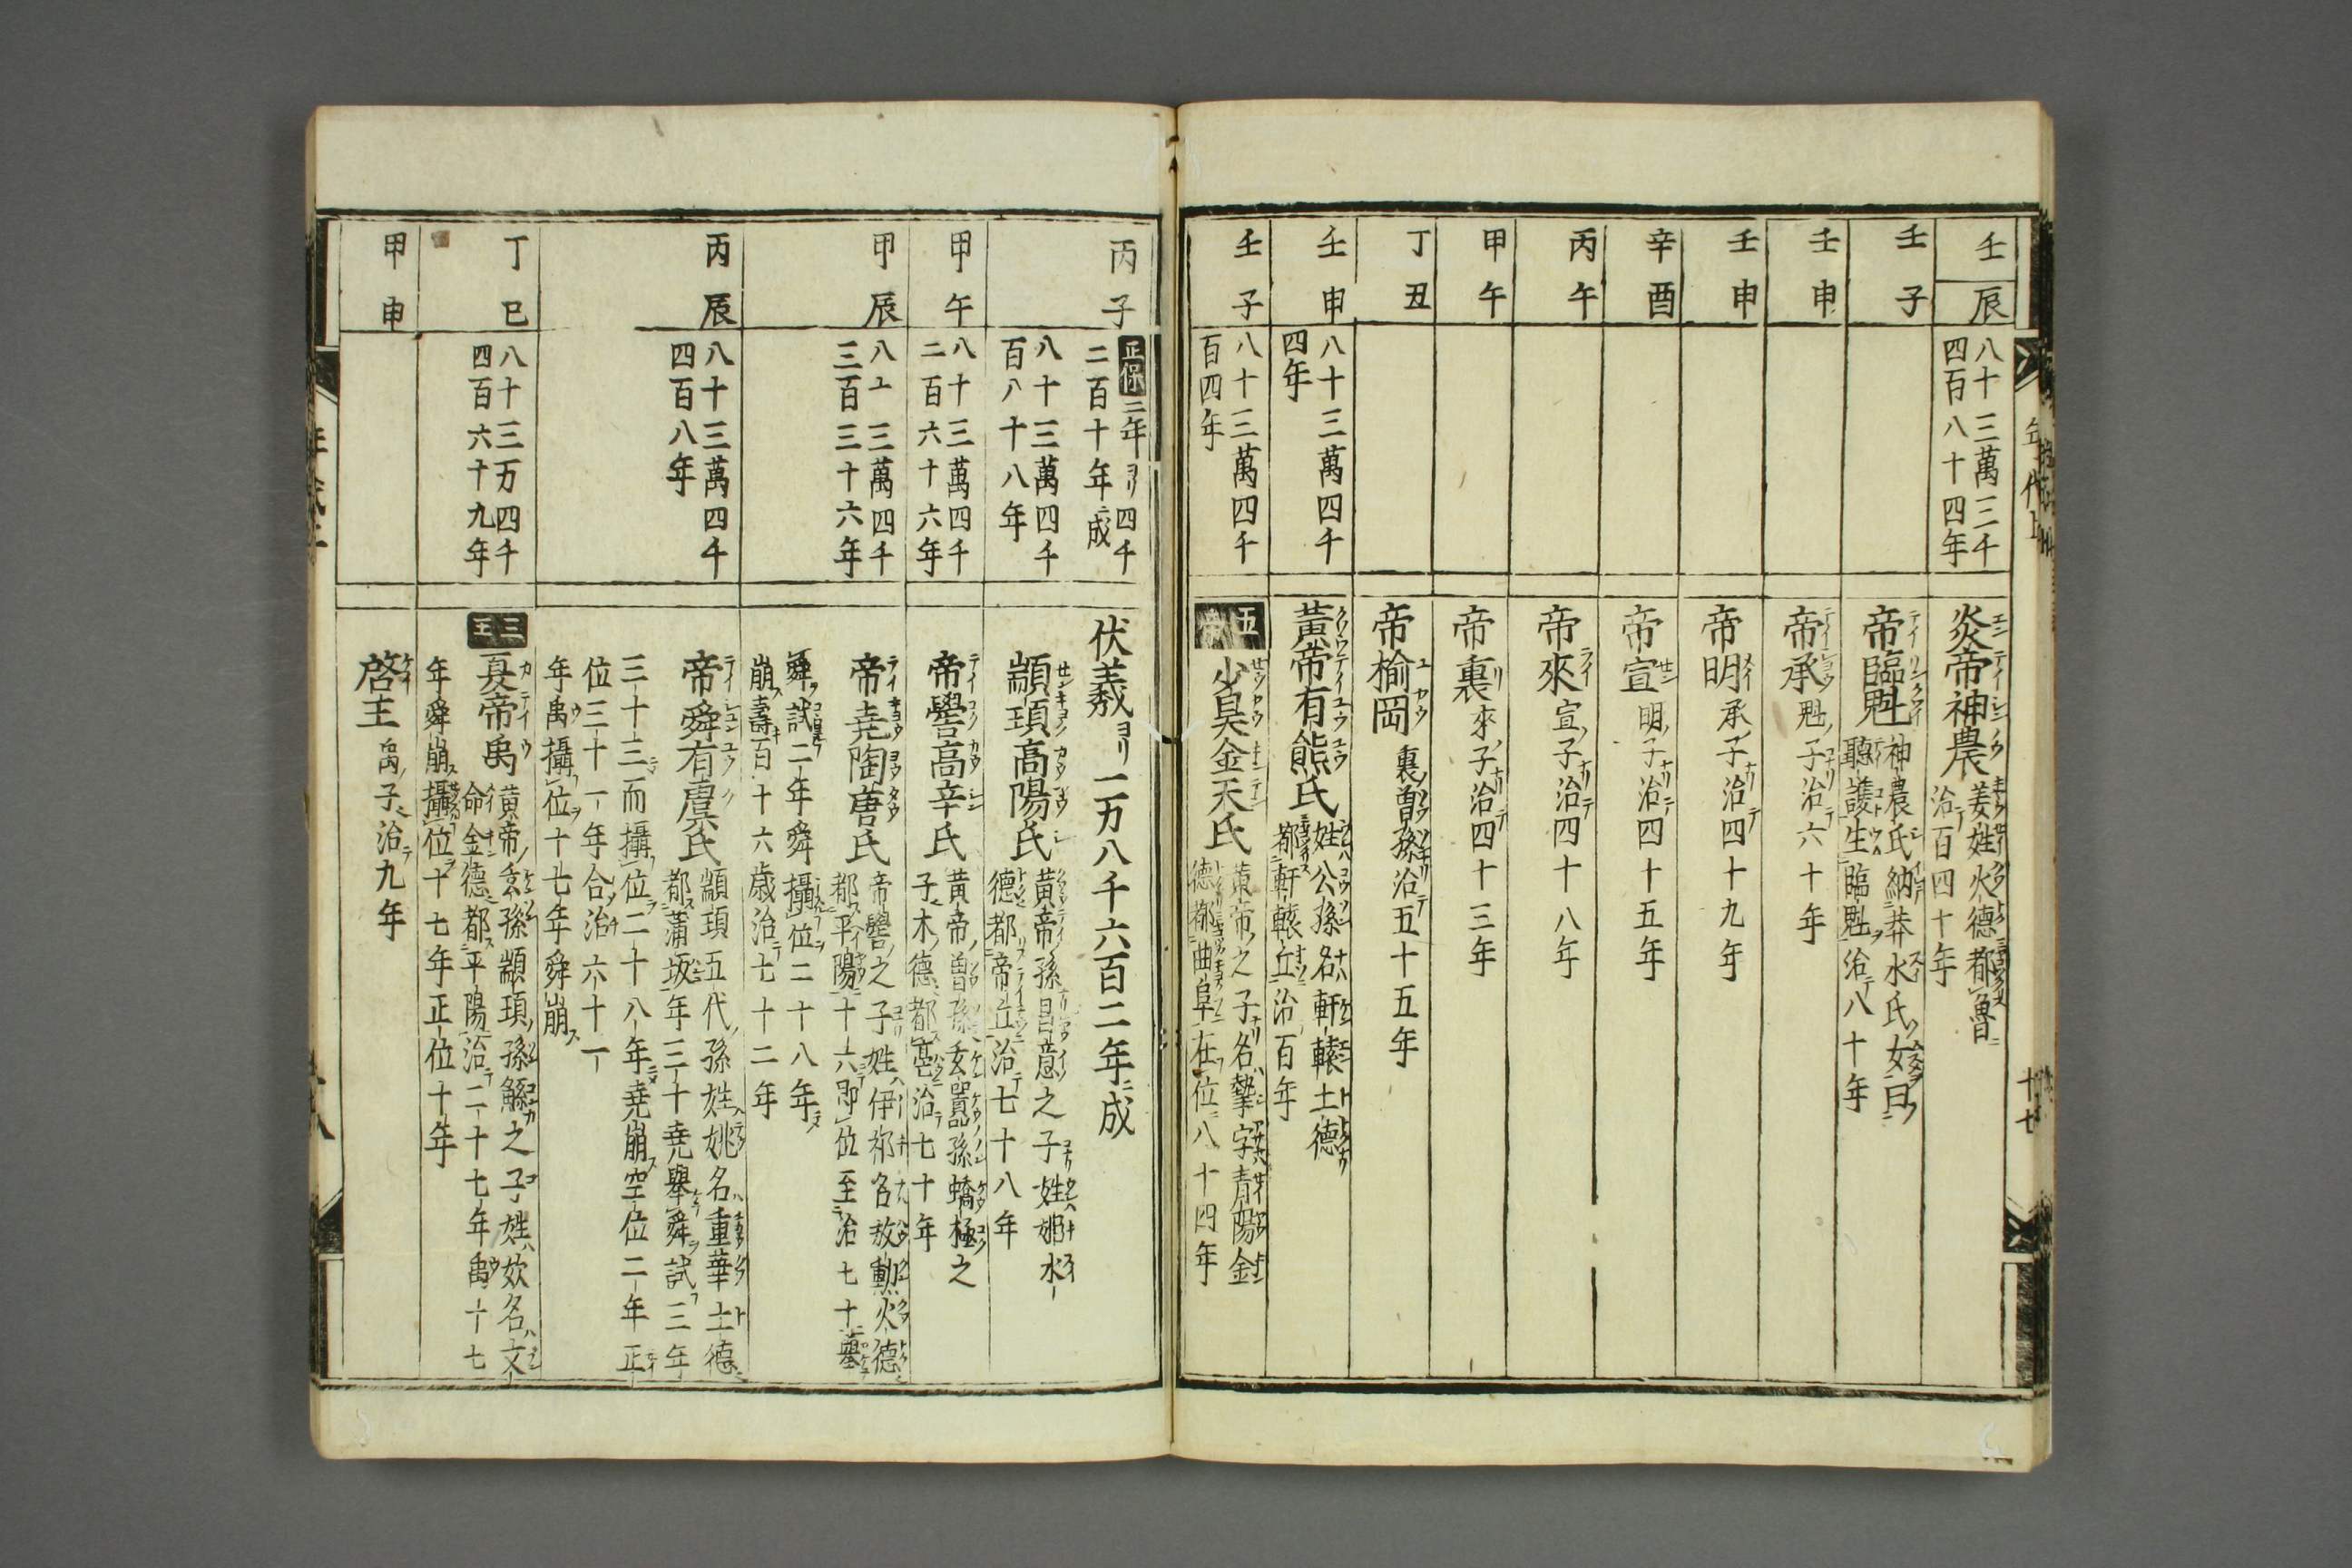 壬辰
八十三萬三千
四百八十四年
炎帝神農
姜姓火德都魯
治百四十年
壬子
帝臨魁
神農氏納莽水氏女曰
聽談生臨魁治八十年
壬申
帝承魁子治六十年
壬申
帝明承子治四十九年
辛酉
帝宣明子治四十五年
丙午
帝來宣子治四十八年
甲午
帝裏來子治四十三年
丁丑
帝榆岡裏曾孫治五十五年
壬申
八十三萬四千
四年
黃帝有熊氏
姓公孫名軒轅土德
都軒轅丘治百年
壬子
八十三萬四千
百四年
五
少昊金天氏
黃帝之子名摯字青陽金
德都曲阜在位八十四年
年代上
十七
丙子
正保三年ヨリ四千
二百十年ニ成
伏羲ヨリ一万八千六百二年ニ成
八十三萬四千
百八十八年
顓頊高陽氏
黃帝孫昌意之子姓姬水
德都帝丘治七十八年
甲午
八十三萬四千
二百六十六年
帝嚳高辛氏
黃帝曾孫玄囂孫蟜極之
子木德都亳治七十年
甲辰
八十三萬四千
三百三十六年
帝堯陶唐氏
帝嚳之子姓伊祁名放勳火德
都平陽十六即位至治七十
舜試二年舜攝位二十八年
崩壽百十六歳治七十二年
丙辰
八十三萬四千
四百八年
帝舜有虞氏
顓頊五代孫姓姚名重華土德
都蒲坂年三十堯舉舜試三年
三十三而攝位二十八年堯崩空位二年正
位三十一年合治六十一
年禹攝位十七年舜崩
丁巳
八十三万四千
四百六十九年
三王
夏帝禹
黃帝玄孫顓頊孫鯀之子姓姒名文
命金德都平陽治二十七年禹十七
年舜崩攝位十七年正位十年
甲申
啓王禹子治九年